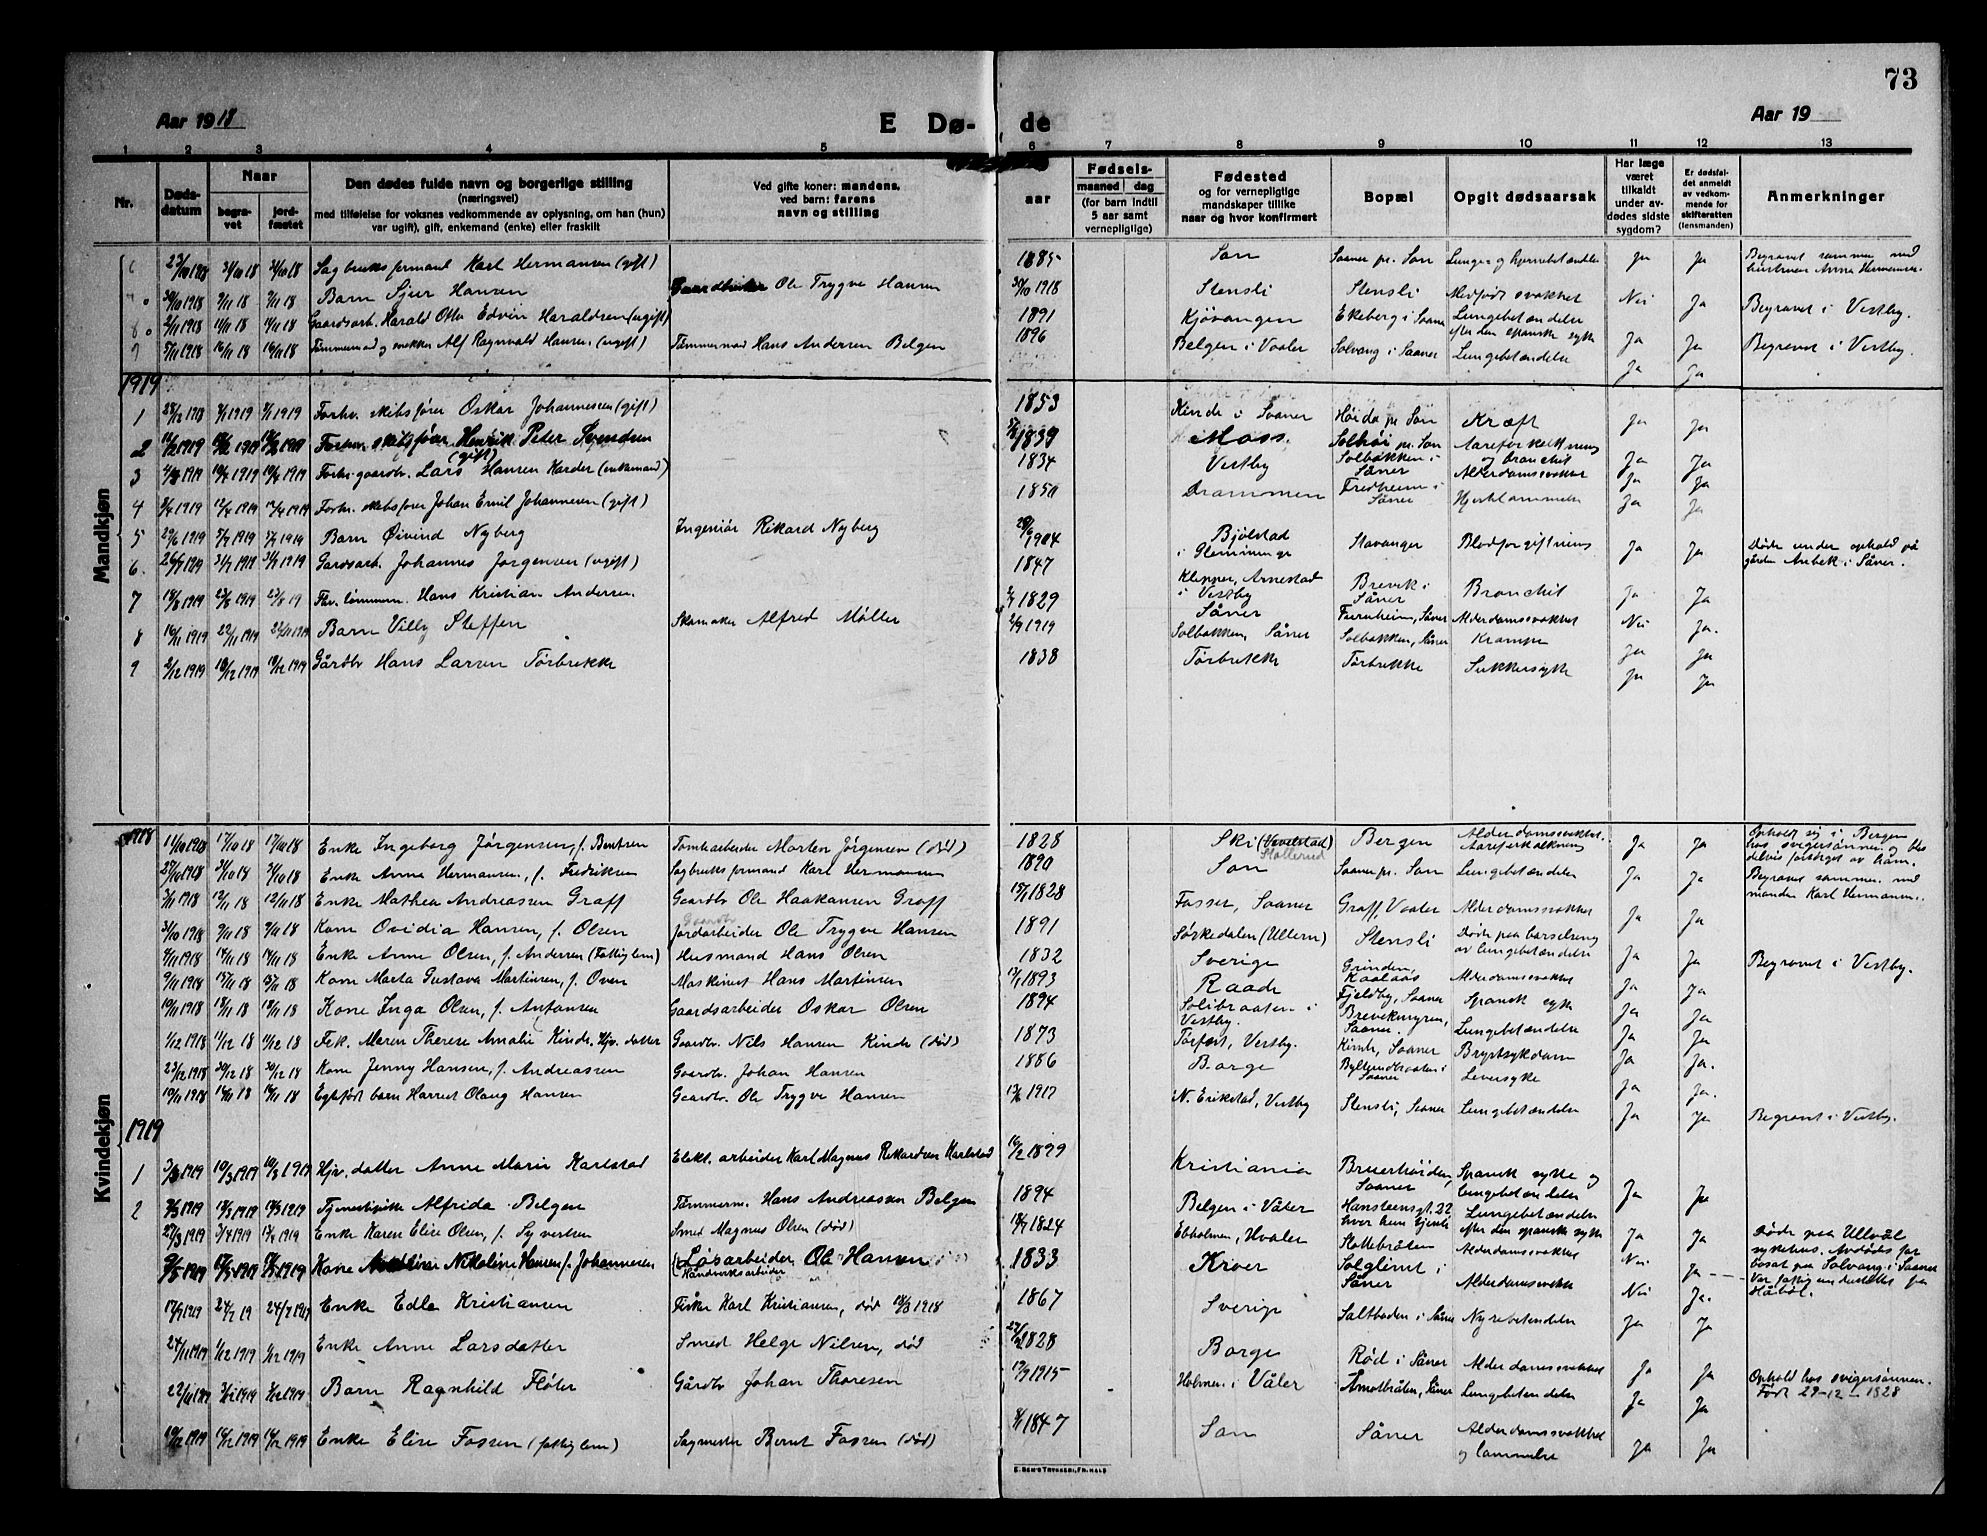 73
Aar 1918
E Dø-
de
Aar 19
1 2 3 4 5 6 7 8 9 10 11 12 13
Nr.
Døds-
datum
Naar
begra-
vet
jord-
fæstet
Den dødes fulde navn og borgerlige stilling
(næringsvei)
med tilføielse for voksnes vedkommende av oplysning, om han (hun)
var ugift), gift, enkemand (enke) eller fraskilt
Ved gifte koner: mandens,
ved barn: farens
navn og stilling
aar
Fødsels-
maaned dag
(for barn indtil
5 aar samt
vernepligtige)
Fødested
og for vernepligtige
mandskaper tillike
naar og hvor konfirmert
Bopæl
Opgit dødsaarsak
Har læge
været
tilkaldt
under av-
dødes sidste
sygdom?
Er dødsfal-
det anmeldt
av vedkom-
mende for
skifteretten
(lensmanden)
Anmerkninger
Mandkjøn
6 23/10 1918 31/10 18 31/10 18 Sagbruksformand Karl Hermansen (gift) 1885 Son Saaner pr. Son Lunge og hjernebetændelse Ja Ja Begravet sammen med hustruen Anna Hermansen.
7 30/10 1918 9/11 18 9/11 18 Barn Sjur Hansen Gaardbruker Ole Trygve Hansen 30/10 1918 Stensli Stensli Medfødt svakhet Nei Ja Begravet i Vestby.
8 2/11 1918 14/11 18 14/11 18 Gaardsarb. Harald Otto Edvin Haraldsen (ugift) 1891 Kjøvangen Ekeberg i Saaner Lungebetændelse efter den spanske syke Ja Ja
9 5/11 1918 16/11 18 16/11 18 Tømmermand og snekker Alf Ragnvald Hansen (ugift) Tømmermand Hans Andersen Belgen 1896 Belgen i Vaaler Solvang i Saaner Lungebetændelse Ja Ja Begravet i Vestby.
1919
1 28/12 1918 4/1 1919 4/1 1919 Forhv. skibsfører Oskar Johannessen (gift) 1853 Kinde i Saaner Høida pr. Son Kræft Ja Ja
2 1919 1919 Forhv. skibsfører Henrik Peter Svendsen (gift) 1839 Moss. Solhøi pr. Son Aareforkalkning og bronchit Ja Ja
3 1919 10/4 1919 10/4 1919 Forhv. gaardbr. Lars Hansen Harder (enkemand) 1834 Vestby Solbakken i Såner Alderdomssvakhet Ja Ja
4 1919 12/4 1919 12/4 1919 Forhv. skibsfører Johan Emil Johannesen (gift) 1850 Drammen Fredheim i Såner Hjertelammelse Ja Ja
5 29/6 1919 5/7 1919 5/7 1919 Barn Øivind Nyberg Ingeniør Rikard Nyberg 1904 Bjølstad i Glemminge Stavanger Blodforgiftning Ja Ja Døde under ophold på gården Aabek i Såner.
6. 26/7 1919 31/7 1919 31/7 1919 Gardsarb. Johannes Jørgensen (ugift) 1847 Klepper, Arnestad i Vestby Brevik i Såner Bronchit Ja Ja
7 18/8 1919 23/8 1919 23/8 19 Fhv. tømmerm. Hans Kristian Andersen. 1829 Såner Furuheim, Såner Alderdomssvakhet Nei Ja.
8 16/11 1919 22/11 1919 22/11 1919 Barn Villy Steffen Skomaker Alfred Møller 1919 Solbakken, Såner Solbakken, Såner Krampe Ja Ja
9 2/12 1919 10/12 1919 10/12 1919 Gårdbr Hans Larsen Tørbrekke 1838 Tørbrekke Tørbrekke Sukkersyke Ja Ja
Kvindekjøn
1918 11/10 1918 17/10 18 17/10 18 Enke Ingeborg Jørgensen, f. Bentsen Tomtearbeider Morten Jørgensen (død) 1828 Ski (Vevelstad) Bergen Alderdomssvakhet. Aareforkalkning Ja Ja Opholdt sig i Bergen hos svigersønnen og blev delvis forsørget av ham.
25/10 1918 31/10 18 31/10 18 Enke Anna Hermansen, f. Fredriksen Sagbruksformand Karl Hermansen 1890 Son Saaner pr. Son Lungebetændelse Ja Ja Begravet sammen med manden Karl Hermansen.
3/11 1918 12/11 18 12/11 18 Enke Mathea Andreassen Graff Gaardbr Ole Haakansen Graff 15/1 1828 Fosser, Saaner Graff, Vaaler Alderdomssvakhet Ja Ja
31/10 1918 9/11 18 9/11 18 Kone Ovidia Hansen, f. Olsen Gaardbr Jordarbeider Ole Trygve Hansen 1891 Sørkedalen (Ullern) Stensli Døde paa barselseng av lungebetændelse Ja Ja Begravet i Vestby.
9/11 1918 14/11 18 14/11 18 Enke Anne Olsen, f. Andersen (Fattiglem) Husmand Hans Olsen 1832 Sverige Grinden, Alderdomssvakhet Ja Ja
9/11 1918 15/11 18 15/11 18 Kone Marta Gustava Martinsen, f. Oven Maskinist Hans Martinsen 1893 Raade Fjeldby, Saaner Spansk syke Ja Ja
10/11 1918 18/11 18 18/11 18 Kone Inga Olsen, f. Antonsen Gaardsarbeider Oskar Olsen 1894 Solibraaten i Vestby. Brevikmyren, Saaner. Lungebetændelse Ja Ja
1/12 1918 11/12 18 11/12 18 Frk. Maren Therese Amalie Kinde, Hjv. datter Gaardbr. Nils Hansen Kinde (død) 1873 Torfest, Vestby. Kinde, Saaner Brystsykdom Ja Ja.
23/12 1918 30/12 18 30/12 18 Kone Jenny Hansen, f. Andreassen Gaardbr. Johan Hansen 1886 Borge Saaner Leversyke Ja Ja.
10/11 1918 16/11 18 16/11 18 Egtefødt barn Harriet Olaug Hansen Gaardbr. Ole Trygve Hansen 1917 N. Erikstad, Vestby Stensli, Saaner Lungebetændelse Ja Ja Begravet i Vestby.
1919
1 3/3 1919 10/3 1919 10/3 1919 Hjv. datter Anne Marie Karlstad Elekt. arbeider Karl Magnus Rikardsen Karlstad 16/2 1899 Kristiania Bruerhøiden, Saaner Spansk syke og lungebetændelse Ja Ja
2 1919 1919 1919 Tjenestepike Alfrida Belgen Tømmerm. Hans Andreassen Belgen 1894 Belgen i Våler Hansteensgt. 22 hvor hun tjente Lungebetændelse efter den spanske syke Ja Ja Døde paa Ullevål sykehus. Avdødes far bosat paa Solvang i Saaner
27/3 1919 1919 1919 Enke Karen Elise Olsen, f. Syversen Smed Magnus Olsen (død) 1824 Ebbholmen, Hvaler Slottebråten Alderdomssvakhet Nei Ja Var fattigunderstøttet fra Håbøl.
1919 1919 1919 Kone Nikoline Hansen f. Johannesen (Løsarbeider Ole Hansen Håndverksarbeider 1833 Kroer Solglimt i Såner Alderdomssvakhet Nei Ja.
17/7 1919 24/7 19 24/7 1919 Enke Edle Kristiansen Fisker Karl Kristiansen, død 1918 1867 Sverige Saltboden i Såner Nyrebetændelse Ja Ja
24/11 1919 1/12 1919 1/12 1919 Enke Anne Larsdatter Smed Helge Nilsen, død 1828 Borge Rød i Såner Alderdomssvakhet Ja Ja Ophold hos svigersønnen. Født 29-12-1828
22/11 1919 1919 1919 Barn Ragnhild Fløter Gårdbr Johan Thoresen 1915 Holmen i Våler Amotbråten, Såner Lungebetændelse Ja Ja
10/12 1919 16/12 1919 16/12 1919 Enke Elise Fossen (fattiglem) Sagmester Bernt Fossen (død) 1847 Son Såner Alderdomssvakhet og lammelse Ja Ja
E. SEM'S TRYKKERI, FR.HALD